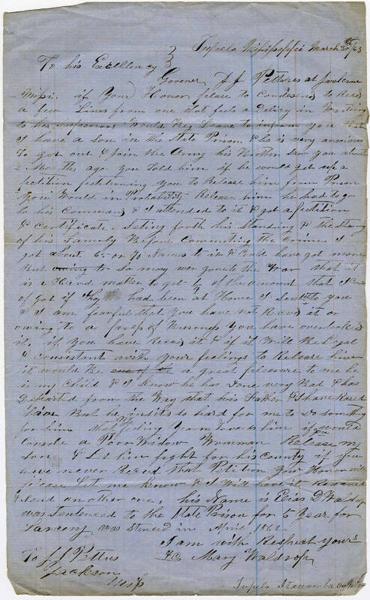 Tupelo Mississippi March 20th /63
To his Excellency
Govener J J Pettus at Jackson
Missi if Your Honor please to Condesend to Read
a few Lines from one that feels a Delicy in Writing
to the
I have a son in the State Prison & he is very anxious
to get out & join the Army his Brother saw you
the ago You told him if he would get up a
petition petitioning you to Release him from Prison
You Would in Probability Release him he had to go
to his Command & I attended to it & got a petition
& Certificate seting forth his Standing & the Standing
of his Family Before Commiting the Crime I
got about 65 or 70 Names to it & Could have got more
But owing to so many were gone to the War that it
is a Hard matter to get
of got if they had been at Home I sent it to you
& I am fearful that You have not Received it or
owing to a press of Buisness You have overlooked
it, if you have Received it & if it Will be Legal
& consistant with your feelings to Release him
it would be a great pleasure to me he
is my Child & I know he has Done very Bad & has
Departed from the Way that his Father & I have Raised
Him But he
for him
Console a Poor Widow Womman Release my
son & Let him fight for his Country if you
have never Recived that Petition Your Honor will
please Let me know & I Will have it
& send another one, his Name is
was Sentenced to the State Prison for 5 Year for
Larceny was Sentenced in April 1862
I am with Respect Yours
Mary Waldrop
To J J Pettus
Jackson
Missi
Tupelo Itawamba